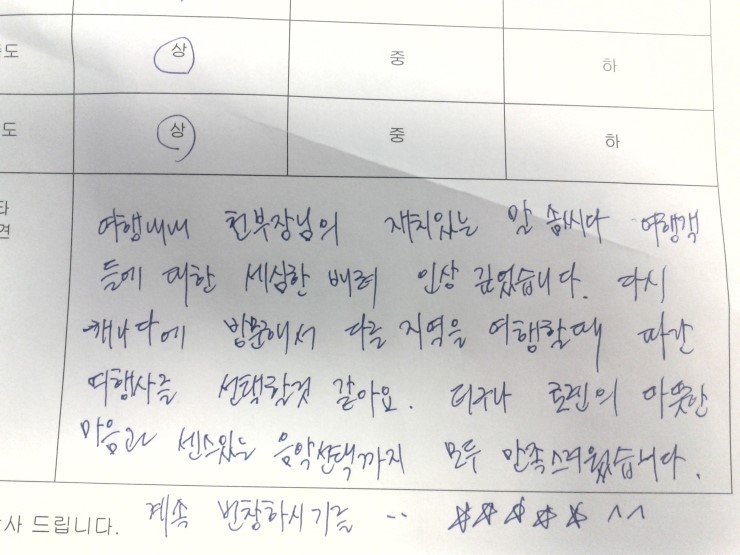 족도 상 중 하
도 상 중 하
타
견
여행내내 천부장님의 재치있는 말 솜씨다 여행객
들에 대한 세심한 배려 인상 깊었습니다. 다시
캐나다에 방문해서 다른 지역을 여행할때 파란
여행사를 선택할것 같아요. 더구나 토렌의 따뜻한
마음과 센스있는 음악선택까지 모두 만족스러웠습니다.
사 드립니다. 계속 번창하시기를 ·· ☆☆☆☆☆ ^^